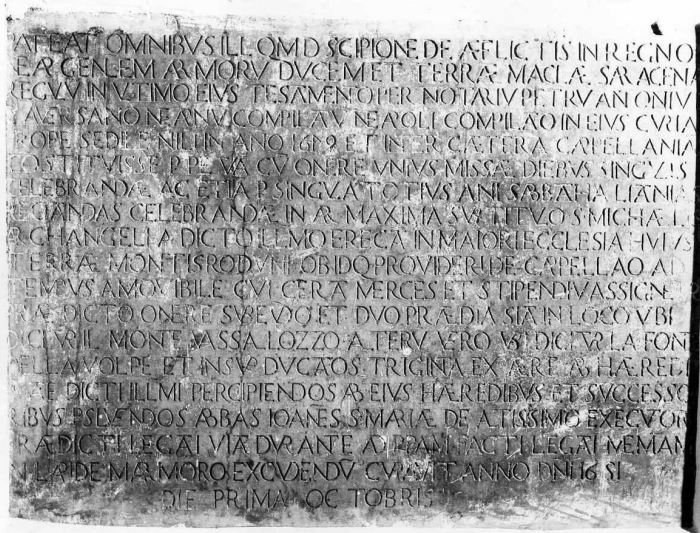 PATEAT OMNIBVS ILL QM D SCIPIONE DE AFLICTIS IN REGNO
GENTEM ARMORV DVCEM ET TERRÆ MACLÆ SARACENA
REGVV IN VLTIMO EIVS TESAMENO PER NOTARIV PETRVM ANTONIV
AVERSANO NEAP COMPILAV NEAPOLI COMPILAO IN EIVS CVRIA
PROPE SEDILE NILI IN ANO 1649 ET INTER CÆTERA CAPELLANIA
COSTITVISSE PPETVA CV ONERE VNIVS MISSÆ DIEBVS SINGVLIS
CELEBRANDÆ AC ETIA P SINGVLA TOTIVS ANI SABBATHA LITANIA
RECITANDAS CELEBRANDÆ IN ARÆ MAXIMA SVB TITVLO S MICHAEL
ARCHANGELI A DICTO ILLMO ERECTA IN MAIORI ECCLESIA HVIVS
TERRÆ MONTISRODVNI OB ID Q PROVIDERI DE CAPELLAO AD
TEMPVS AMOVIBILE CVI CERTA MERCES ET STIPENDIV ASSIGNET
PRÆDICTO ONERE SVBEVDO ET DVO PRÆDIA SITA IN LOCO VBI
DICITVR IL MONTE VASSALLOZZO ALTERV VERO VBI DICITVR LA FONT
DELLA VOLPE ET INSVP DVCATOS TRIGINTA EX ÆRE AB HÆREDI
DICTI ILLMI PERCIPIENDOS AB EIVS HÆREDIBVS ET SVCCESSO
RIBVS PSLVENDOS ABBAS IOANES S MARIÆ DE ALTISSIMO EXECVTOR
PRÆDICTI LEGATI VITA DVRANTE AD PPAM FACTI LEGATI MEMAM
IN LAPIDE MARMOREO EXCVDENDV CVRAVIT ANNO DNI 1651
DIE PRIMA OCTOBRIS